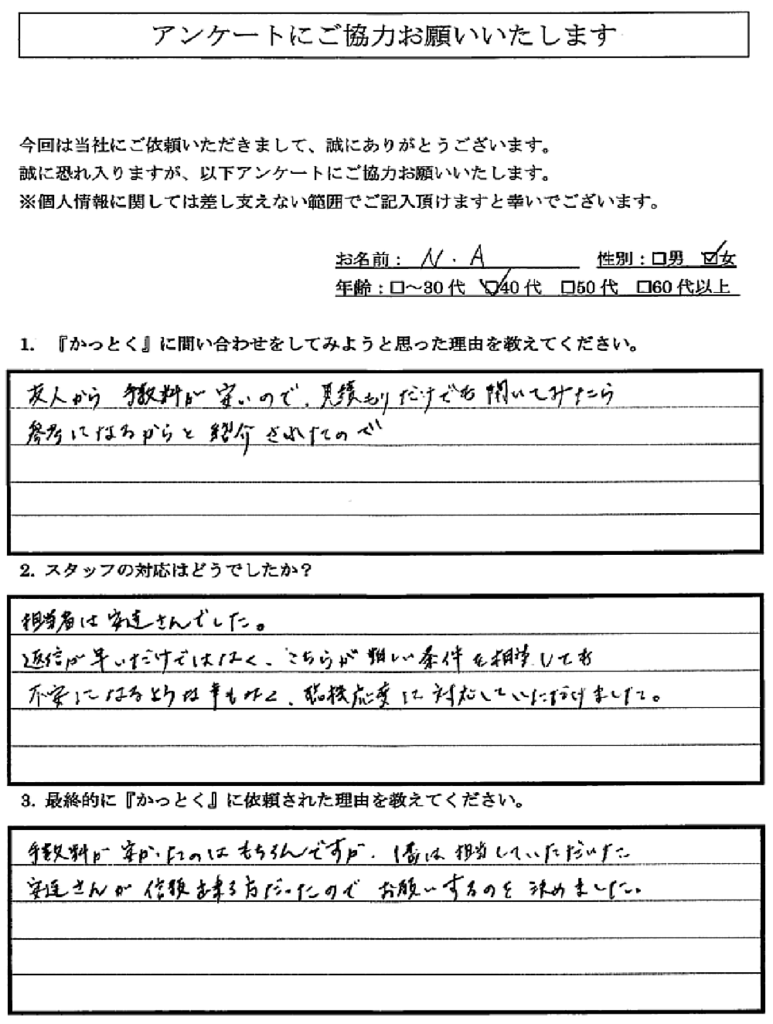 アンケートにご協力お願いいたします
今回は当社にご依頼いただきまして、誠にありがとうございます。
誠に恐れ入りますが、以下アンケートにご協力お願いいたします。
※個人情報に関しては差し支えない範囲でご記入頂けますと幸いでございます。
お名前： N . A 性別：□男 ☑女
年齢：□～30 代 ☑40 代 □50 代 □60 代以上
1. 『かっとく』に問い合わせをしてみようと思った理由を教えてください。
友人から 手数料が 安いので、見積もりだけでも 聞いてみたら
参考になるからと 紹介 されたので
2. スタッフの対応はどうでしたか？
担当者は 安達さんでした。
返信が 早いだけではなく、こちらが 難しい 条件を 相談しても
不安になるような事もなく、臨機応変に 対応していただけました。
3. 最終的に『かっとく』に依頼された理由を教えてください。
手数料が 安かったのは もちろんですが、1番は 担当していただいた
安達さんが 信頼出来る方だったので お願いするのを 決めました。